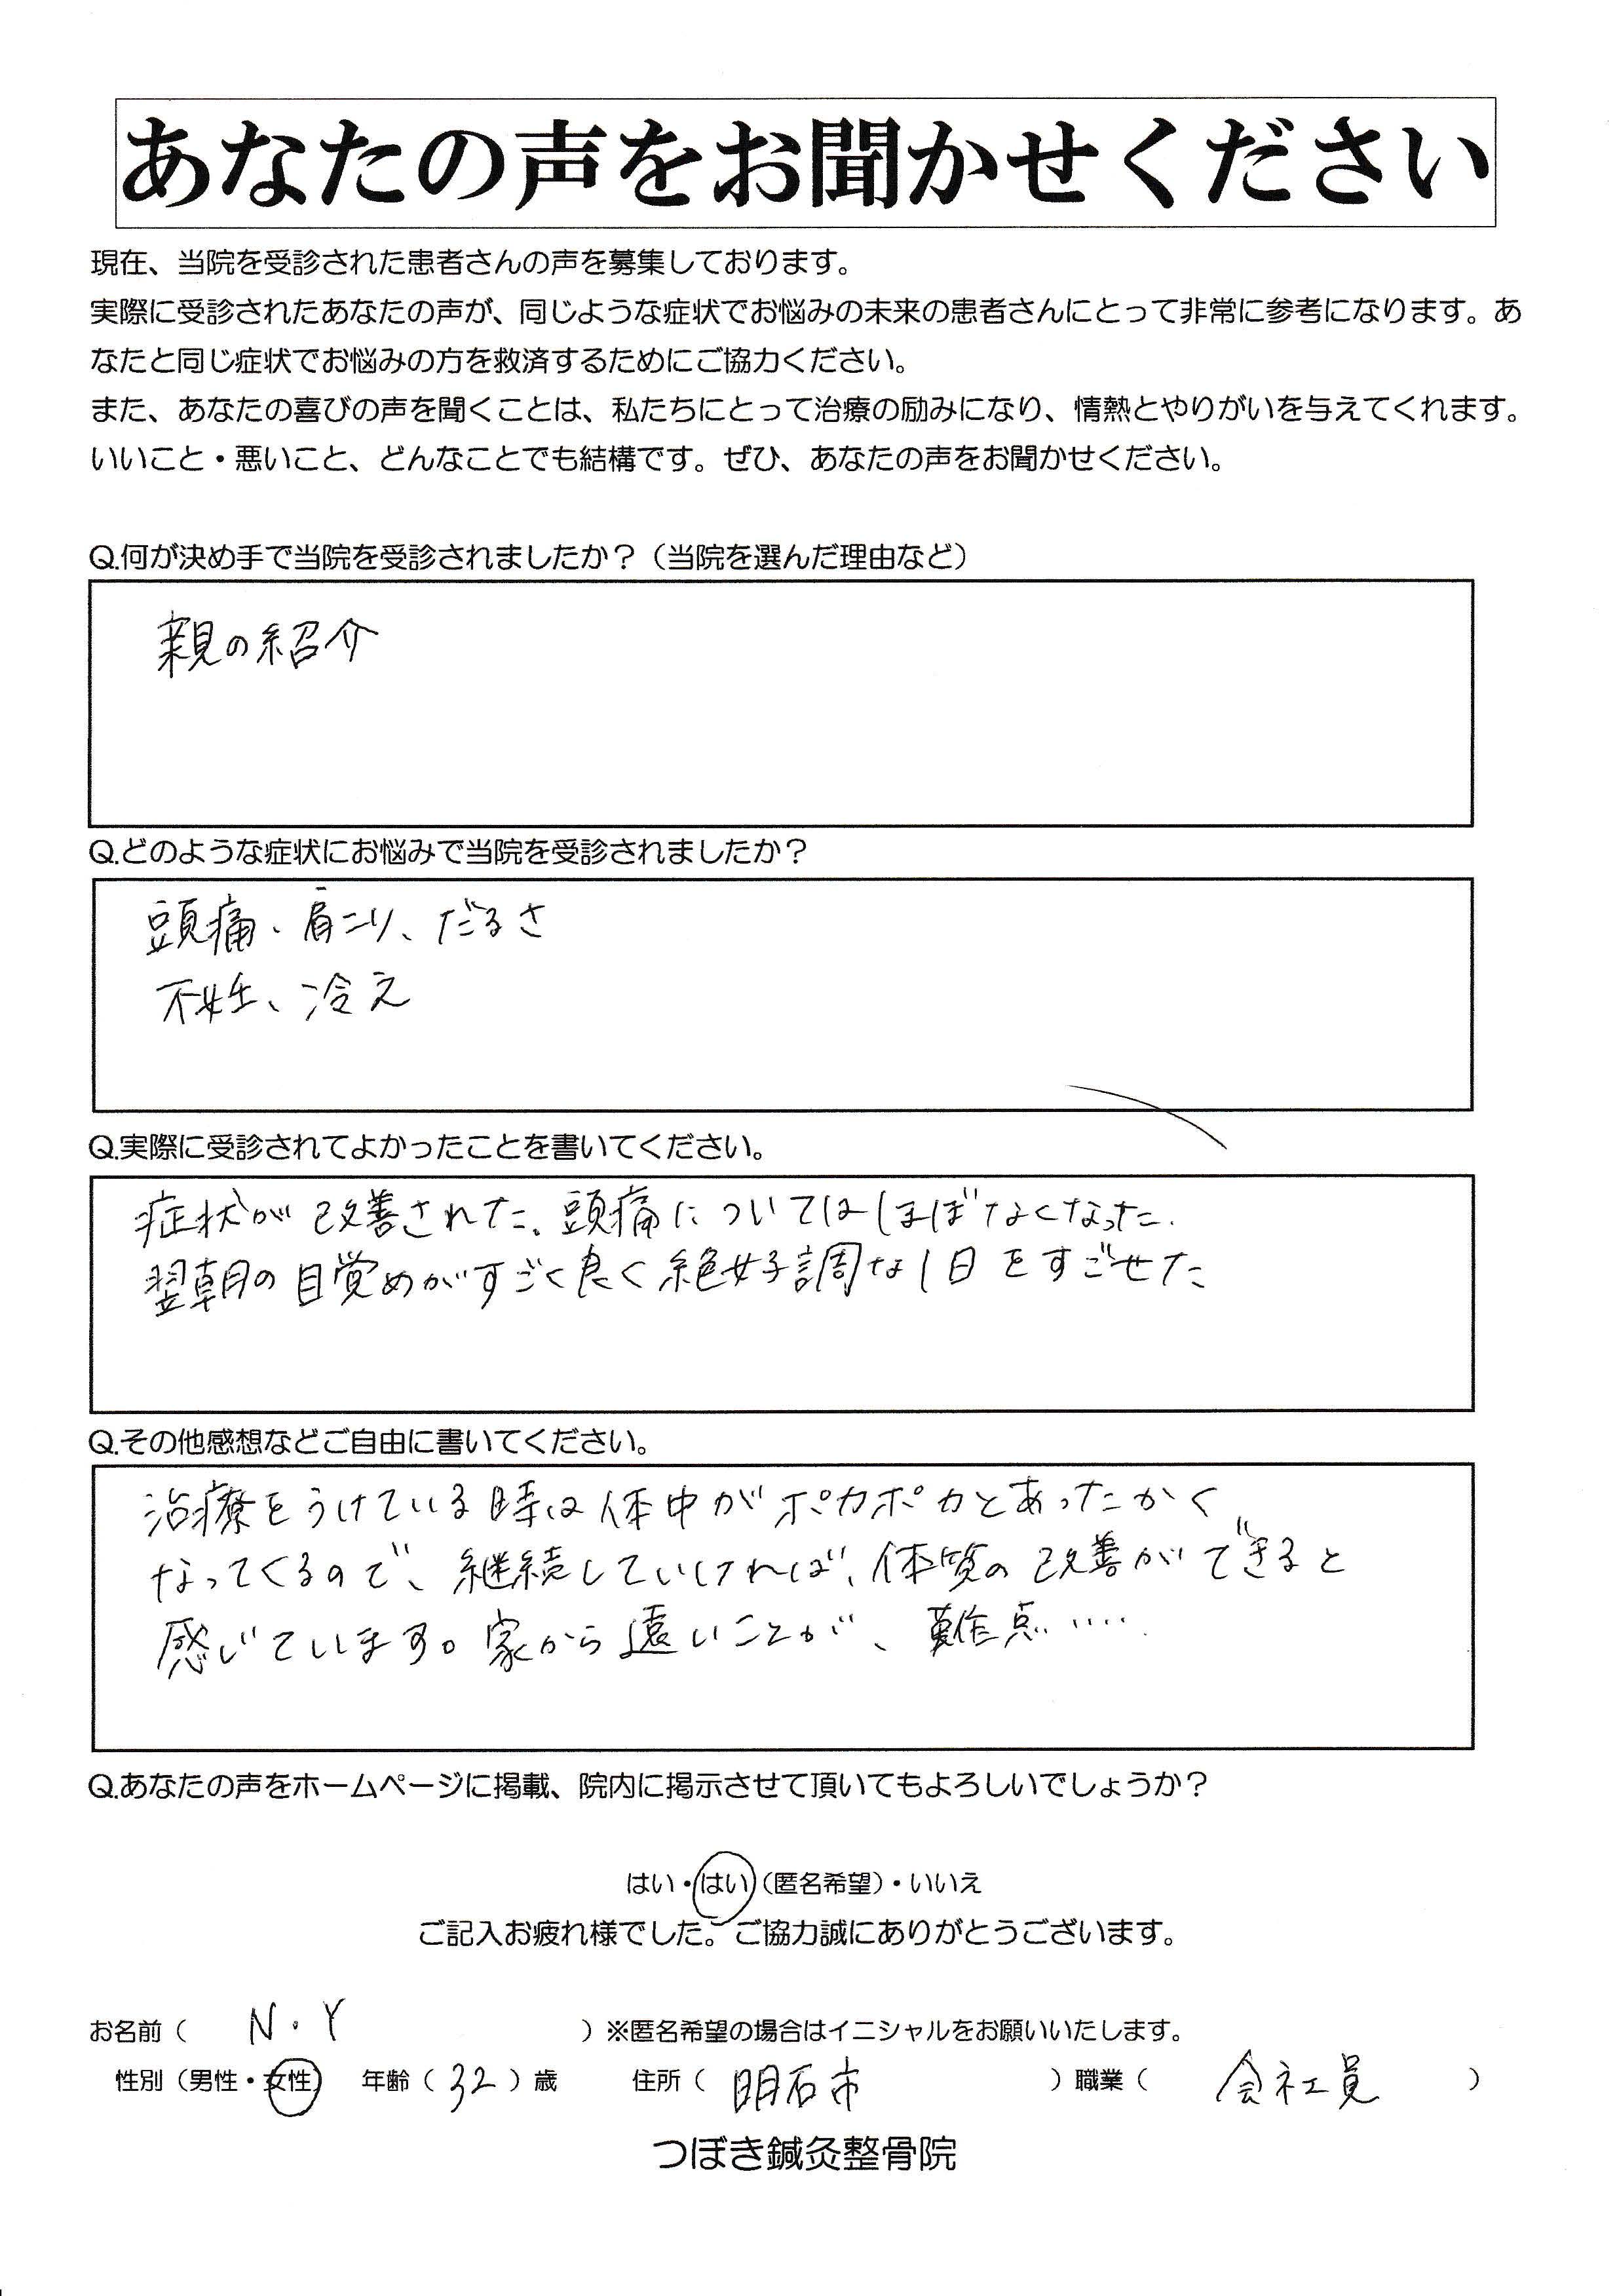 あなたの声をお聞かせください
現在、当院を受診された患者さんの声を募集しております。
実際に受診されたあなたの声が、同じような症状でお悩みの未来の患者さんにとって非常に参考になります。あ
なたと同じ症状でお悩みの方を救済するためにご協力ください。
また、あなたの喜びの声を聞くことは、私たちにとって治療の励みになり、情熱とやりがいを与えてくれます。
いいこと・悪いこと、どんなことでも結構です。ぜひ、あなたの声をお聞かせください。
Q.何が決め手で当院を受診されましたか？（当院を選んだ理由など）
親の紹介
Q.どのような症状にお悩みで当院を受診されましたか？
頭痛、肩こり、だるさ
不妊、冷え
Q.実際に受診されてよかったことを書いてください。
症状が改善された。頭痛についてはほぼなくなった.
翌朝の目覚めがすごく良く絶好調な1日をすごせた
Q.その他感想などご自由に書いてください。
治療をうけている時は体中がポカポカとあったかく
なってくるので、継続していければ、体質の改善ができると
感じています。家から遠いことが、難点‥‥.
Q.あなたの声をホームページに掲載、院内に掲示させて頂いてもよろしいでしょうか？
はい・はい（匿名希望）・いいえ
ご記入お疲れ様でした。ご協力誠にありがとうございます。
お名前（ N.Y ）※匿名希望の場合はイニシャルをお願いいたします。
性別（男性・女性） 年齢（ 32 ）歳 住所（ 明石市 ）職業（ 会社員 ）
つぼき鍼灸整骨院